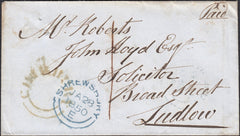 Paid
Mr Roberts
John Loyd Esqr
Solicitor
Broad Street
Ludlow
SHREWSBURY
JA 28
1850